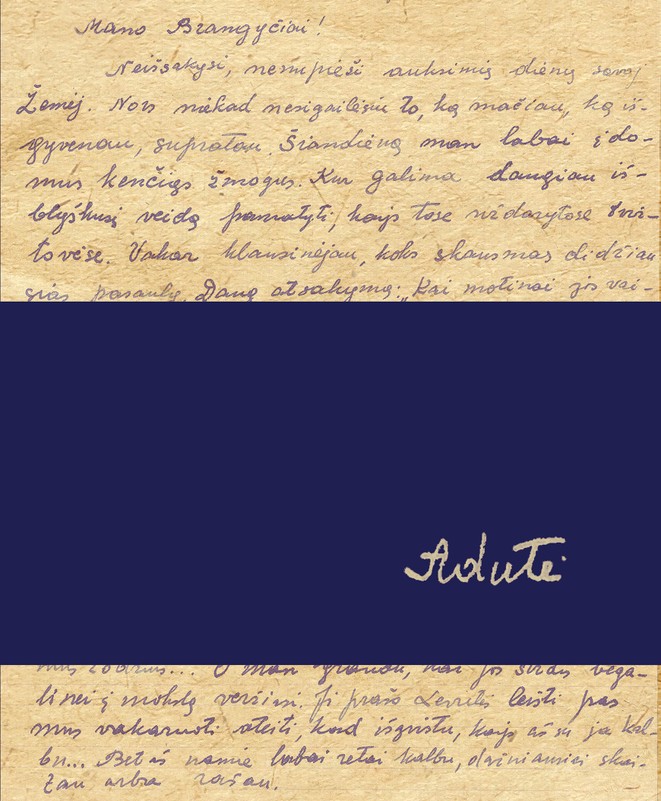 Mano Brangyčiai!
Neišsakysi, nenupieši auksinių dienų savoj
Žemėj. Nors niekad nesigailėsiu to, ką mačiau, ką iš-
gyvenau, supratau. Šiandieną man labai įdo-
mus kenčiąs žmogus. Kur galima daugiau iš-
blyškusį veidą pamatyti, kaip tose uždarytose
tovėse. Vakar klausinėjau, koks skausmas didžiau
sias pasauly. Daug atsakymų: „Kai motinai jos vai-
Adutė
mus žodžius... O man
linei į mokslą veršiasi. Ji prašo leisti pas
mus vakaruoti ateiti, kad išgirstų, kaip aš su ja kal-
bu... Bet aš namie labai retai kalbu, dažniausiai skai-
tau arba rašau.